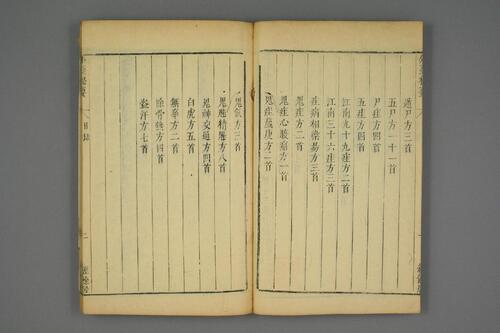 遁尸方三首
五尸方一十一首
尸疰方四首
五疰方四首
江南九十九疰方二首
江南三十六疰方三首
疰病相染易方三首
鬼疰方二首
鬼疰心腹痛方一首
鬼疰羸瘦方二首
鬼氣方三首
鬼魅精魅方八首
鬼神交通方四首
白虎方五首
無辜方二首
除骨熱方四首
盗汗方七首
目錄
二